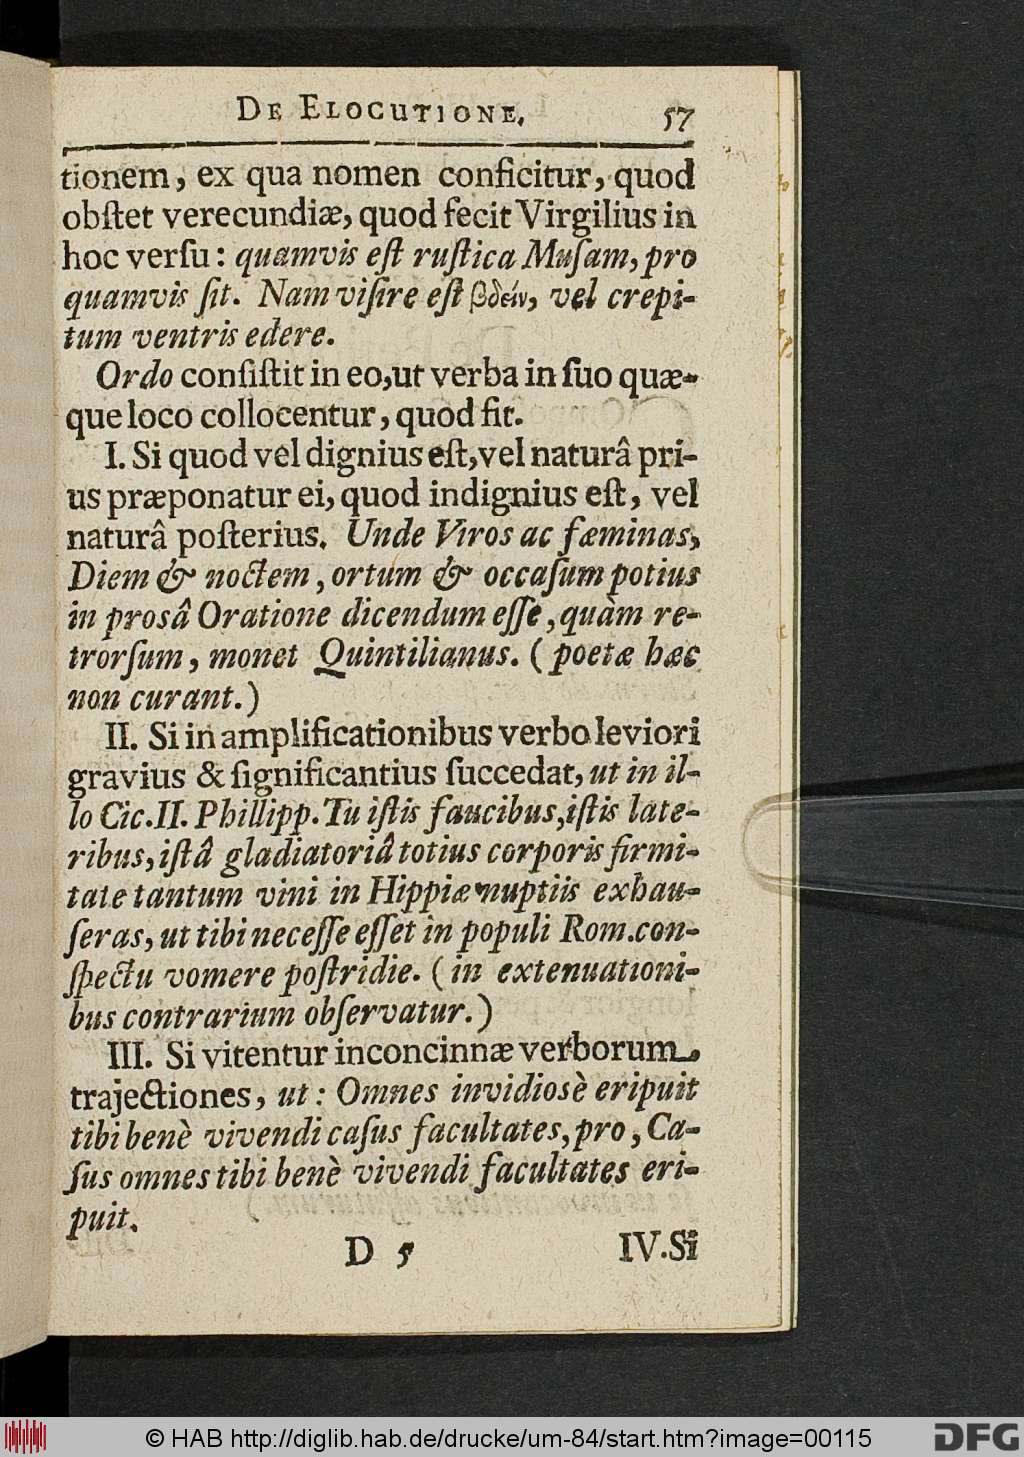 DE ELOCUTIONE. 57
tionem, ex qua nomen conficitur, quod
obſtet verecundiæ, quod fecit Virgilius in
hoc verſu: quamvis eſt ruſtica Muſam, pro
quamvis ſit. Nam viſire eſt βδεῖν, vel crepi-
tum ventris edere.
Ordo conſiſtit in eo, ut verba in ſuo quæ-
que loco collocentur, quod fit.
I. Si quod vel dignius eſt, vel naturâ pri-
us præponatur ei, quod indignius eſt, vel
naturâ poſterius. Unde Viros ac fæminas,
Diem & noctem, ortum & occaſum potius
in prosâ Oratione dicendum eſſe, quàm re-
trorſum, monet Quintilianus. (poetæ hæc
non curant.)
II. Si in amplificationibus verbo leviori
gravius & ſignificantius ſuccedat, ut in il-
lo Cic. II. Phillipp. Tu iſtis faucibus, iſtis late-
ribus, iſtâ gladiatoriâ totius corporis firmi-
tate tantum vini in Hippiæ nuptiis exhau-
ſeras, ut tibi neceſſe eſſet in populi Rom. con-
ſpectu vomere poſtridie. (in extenuationi-
bus contrarium obſervatur.)
III. Si vitentur inconcinnæ verborum
trajectiones, ut: Omnes invidiosè eripuit
tibi benè vivendi caſus facultates, pro, Ca-
ſus omnes tibi benè vivendi facultates eri-
puit.
D 5 IV. Si
© HAB http://diglib.hab.de/drucke/um-84/start.htm?image=00115 DFG